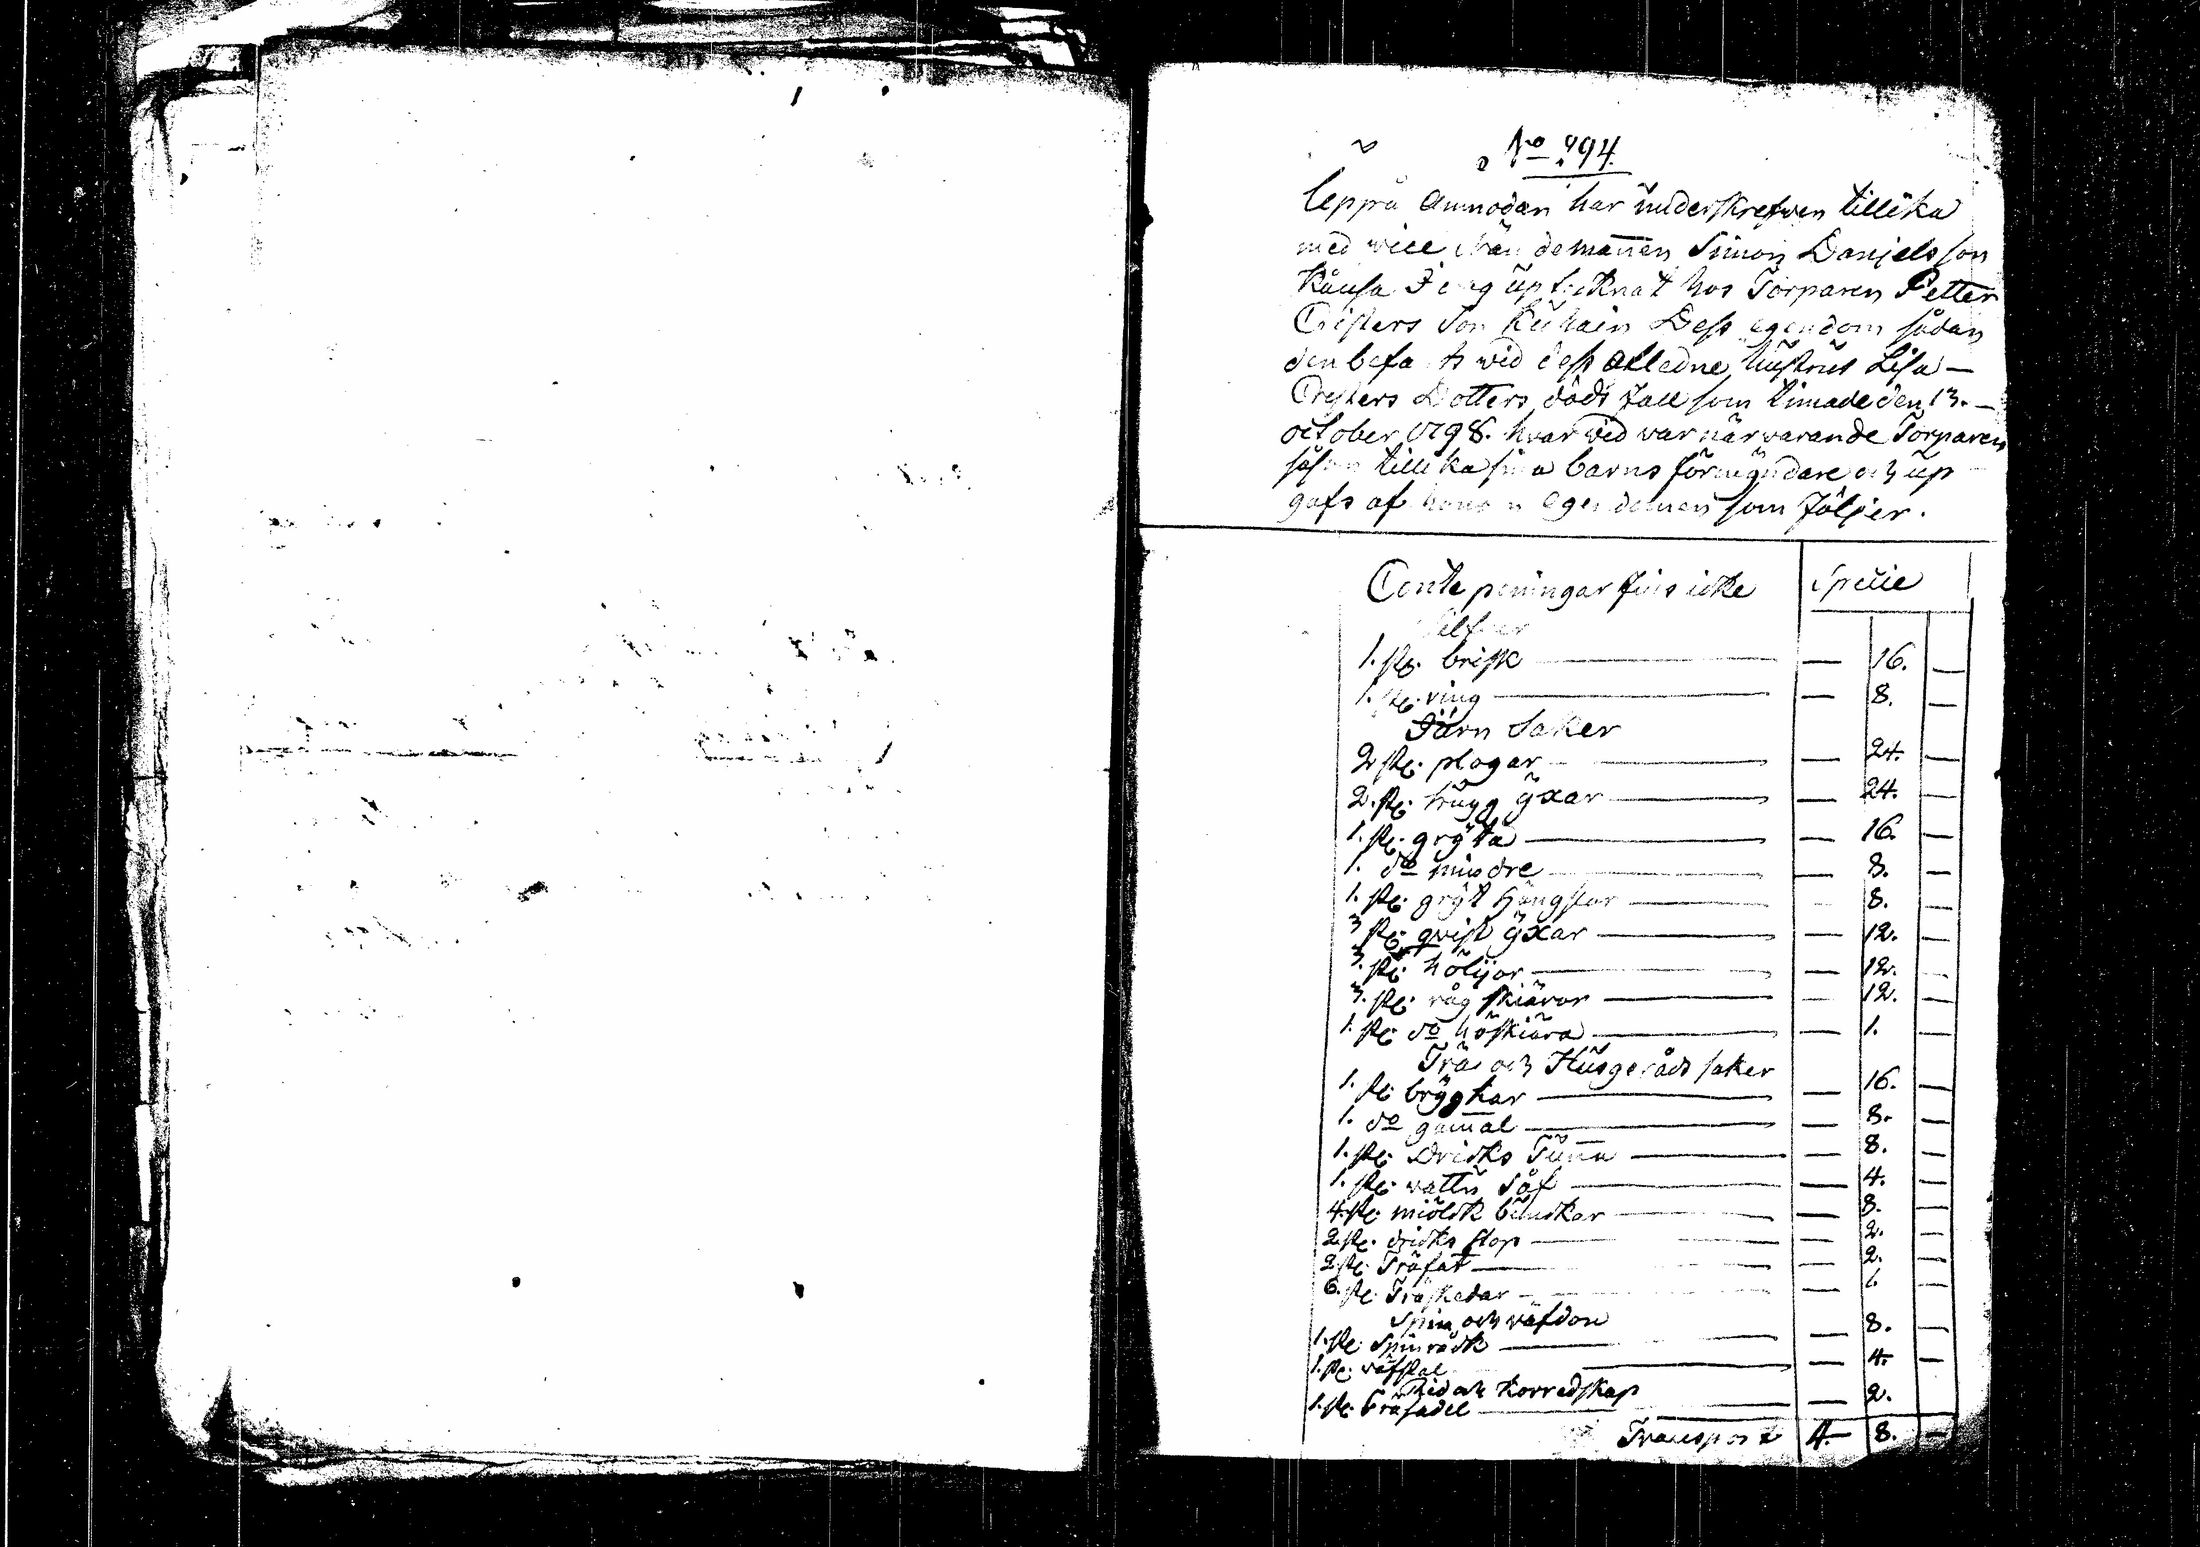 No 994.
uppå anmodan har underskrefwen tillika
med vice Nämdemannen Simon Danjels son
upteknat hos Torparen Petter
Cristers Son Dess egendom sådan
den befants wid dess afledne hustrus Lisa
Cristers Dotters döds fall som timade den 13.
october 1798. hvar wid war närvarande Torparen
såsom tillika sina barns förmyndare och up
gafs af honom egendomen som följer.
Conte peningar fins icke Specie
Silfwer
1. st: brisk — 16. —
1. st: ring — 8. —
Järn Saker
2 st: plogar — 24. —
2. st: hugg yxar — 24. —
1. st: gryta — 16. —
1. do mindre — 8. —
1. st: gryt — 8. —
3 st: qvist yxar — 12. —
3. st: — 12. —
3. st: råg skiäror — 12. —
1. st: do höskiära — 1. —
Trä och Husgeråds saker
1. st: bryggkar — 16. —
1. do gamal — 8. —
1. st: Dricks Tunna — 8. —
1. st: vattu Såf — 4. —
4. st: miölck bunckar — 8. —
2 st: dricks stop — 2. —
2 st: Träfat — 2. —
6. st: Träskedar —
Spin och väfdon
1. st: Spinråck — 8. —
1. st: väfstol — 4. —
Rid och körredskap
1. st: Träsadel — 2.
Transport 4. 8. —